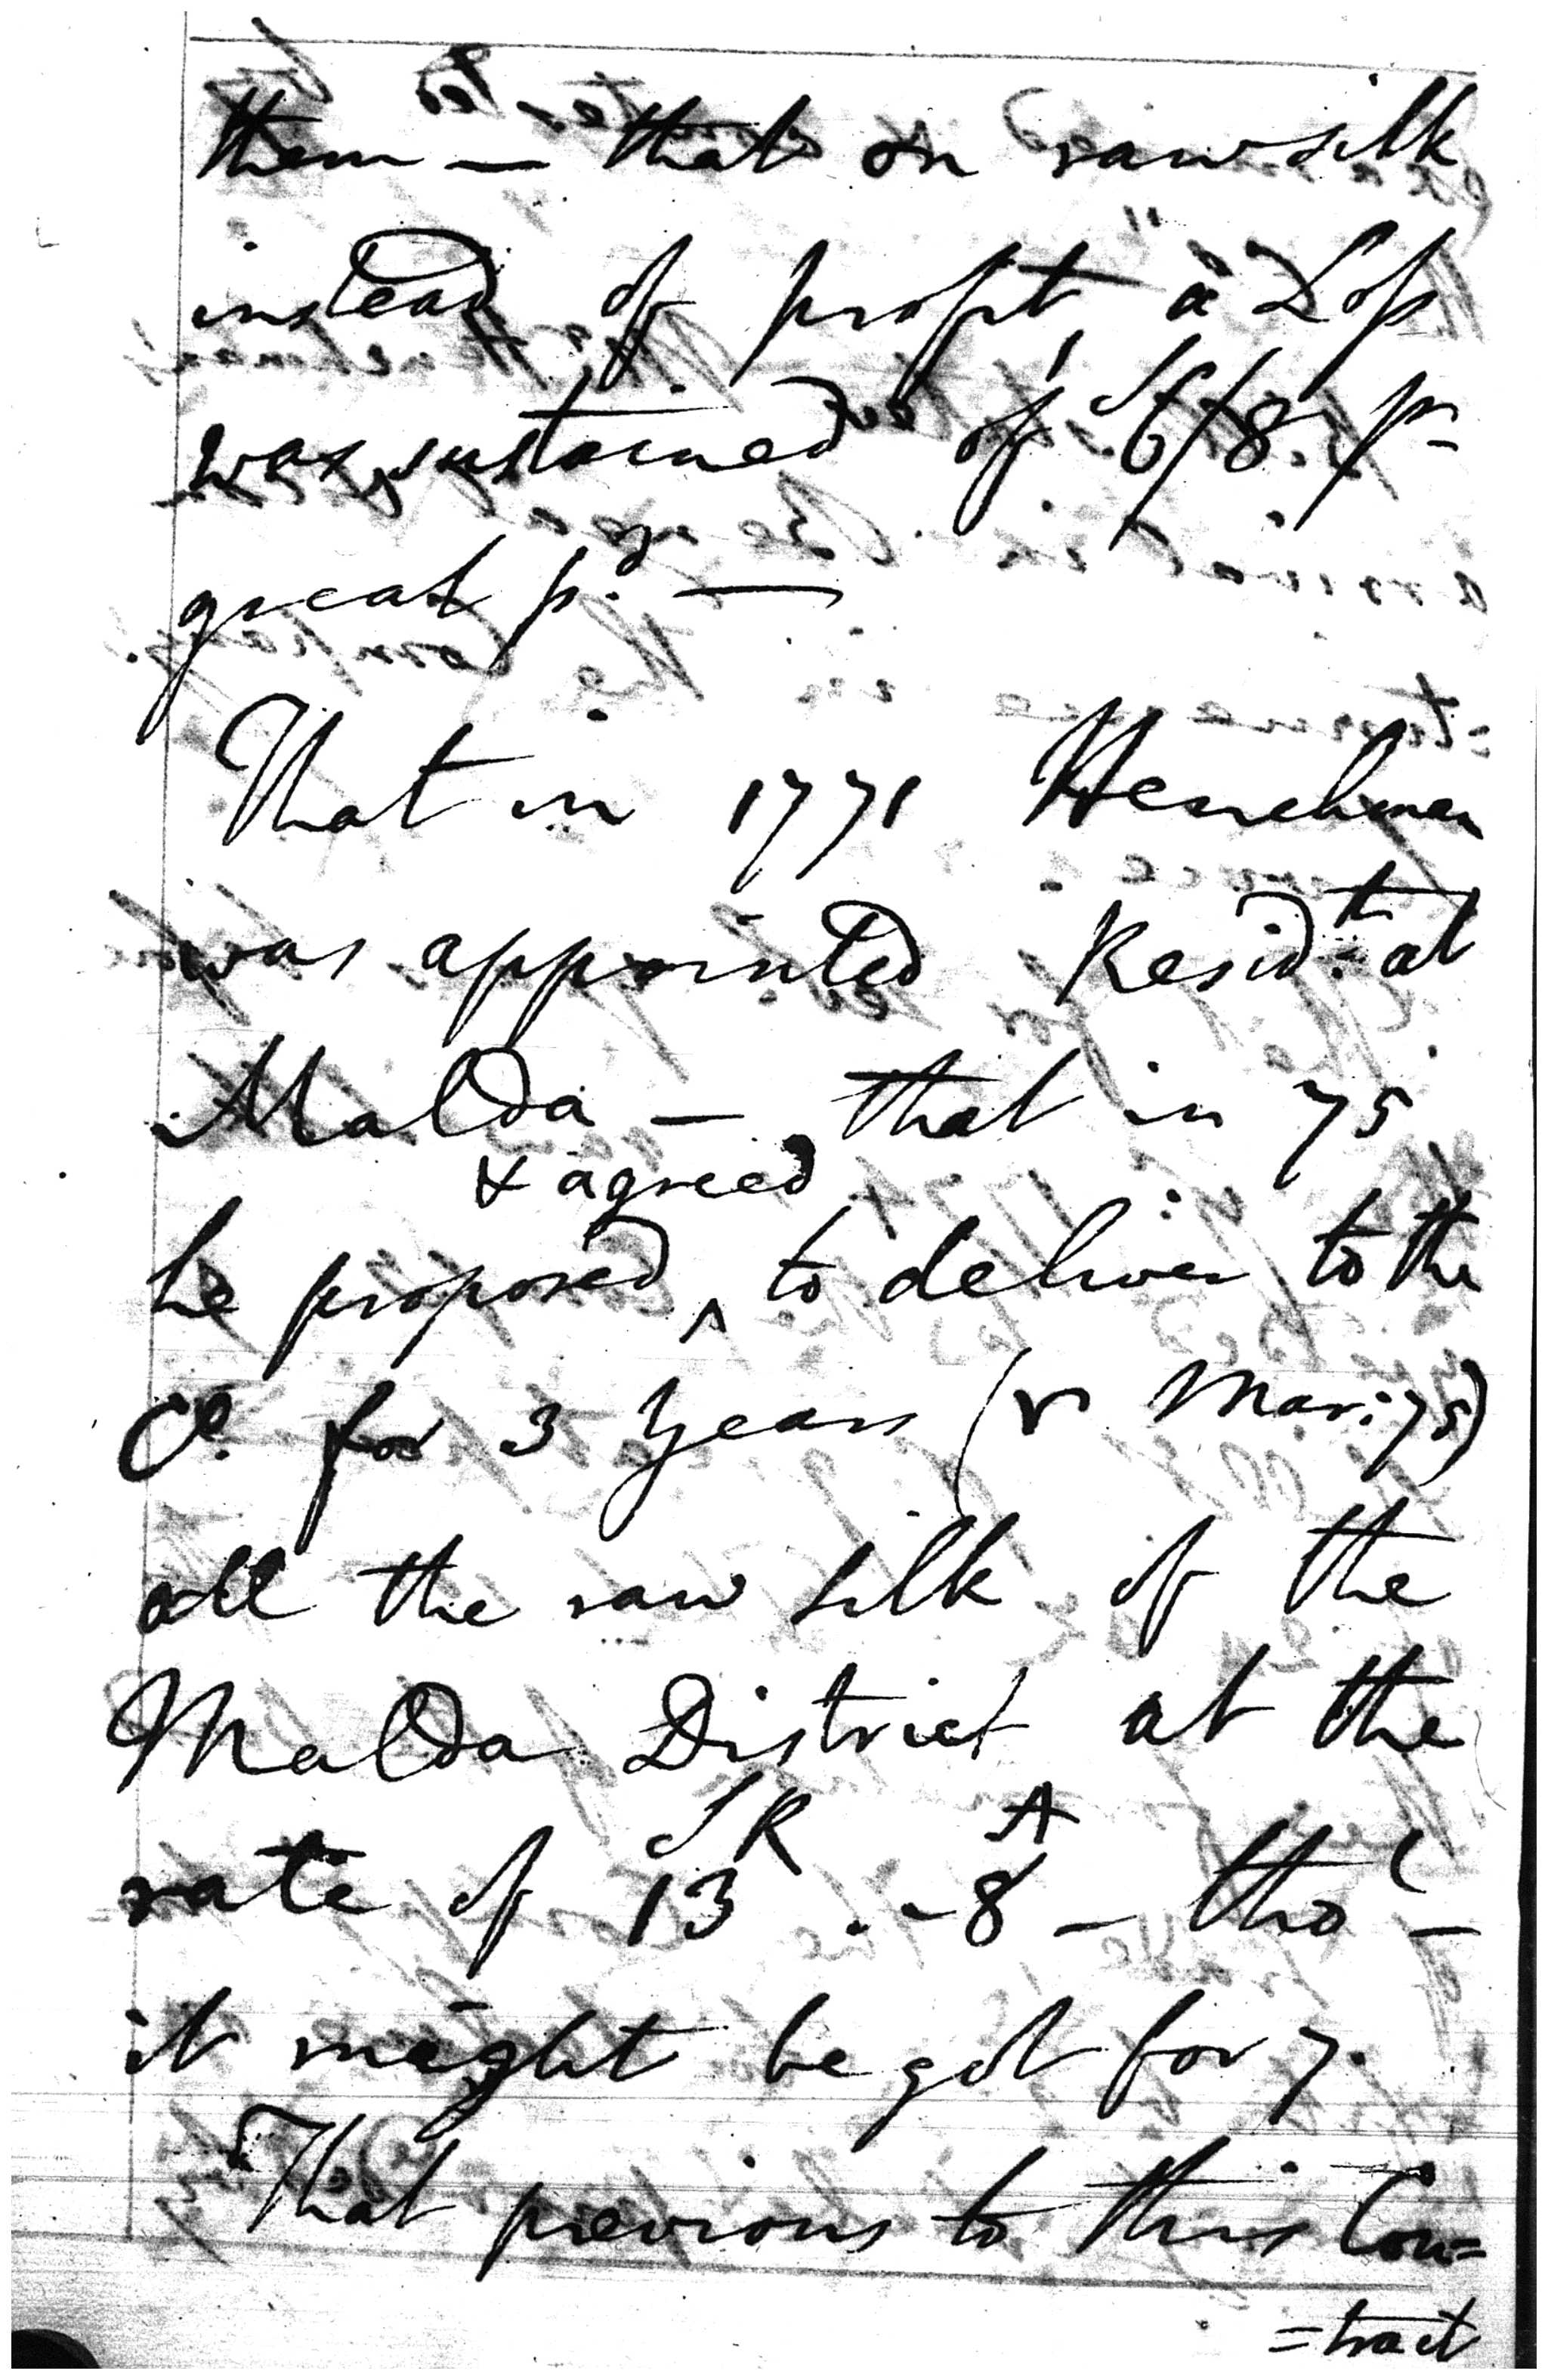 them — that on raw silk
instead of profit, a Loss
was sustained of 6/8 pr
great pd. —
That in 1771 Henchman
was appointed Residt. at
Malda — that in 75
& agreed
he proposed ^ to deliver to the
Co. for 3 years (v Mar: 75)
all the raw silk of the
Malda District at the
SR A
rate of 13 .-8 — tho' —
it might be got for 7.
That previous to this Con=
=tract